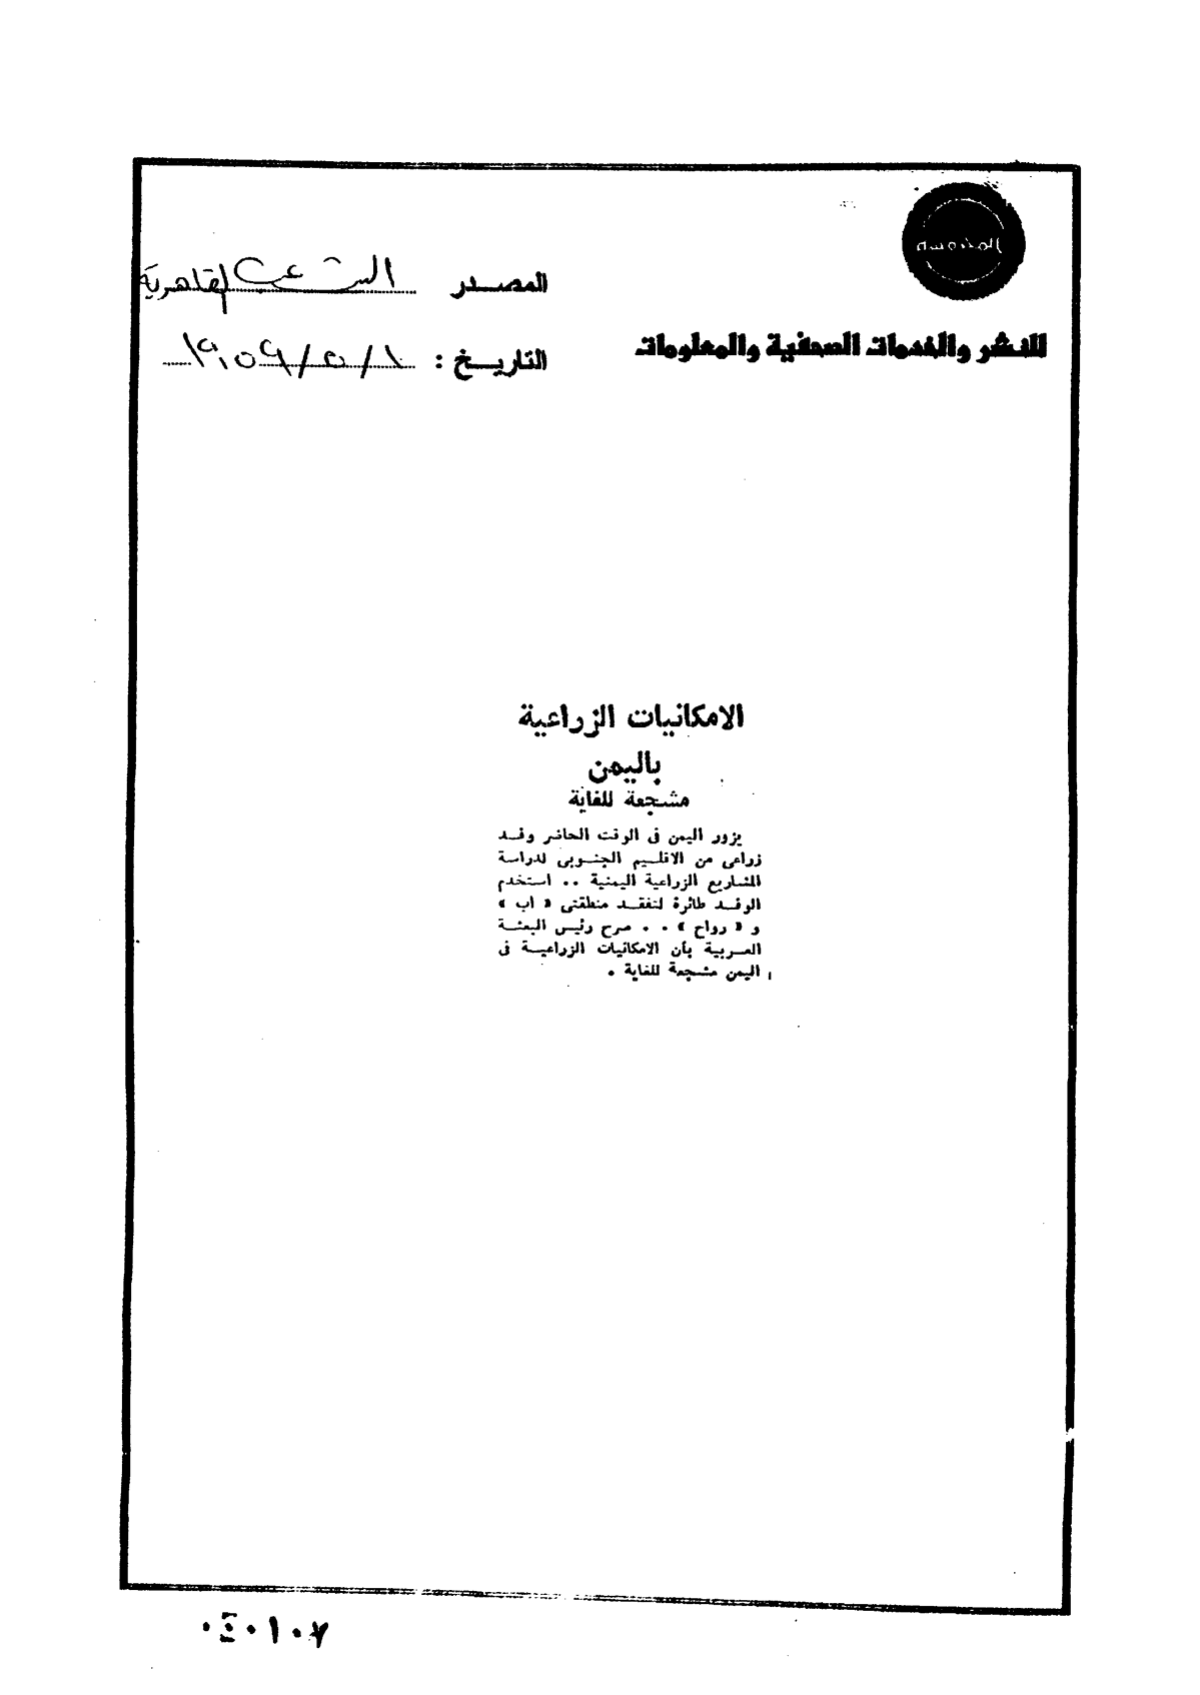 المحروسة
للنشر والخدمات الصحفية والمعلومات
المصدر الشعب القاهرية
التاريخ : ١٩٥٩/٥/١٠
الامكانيات الزراعية
باليمن
مشجعة للغاية
يزور اليمن فى الوقت الحاضر وفد
زراعى من الاقليم الجنوبى لدراسة
المشاريع الزراعية اليمنية .. استخدم
الوفد طائرة لتفقد منطقتى « اب »
و « رواح » .. صرح رئيس البعثة
العربية بأن الامكانيات الزراعية فى
اليمن مشجعة للغاية .